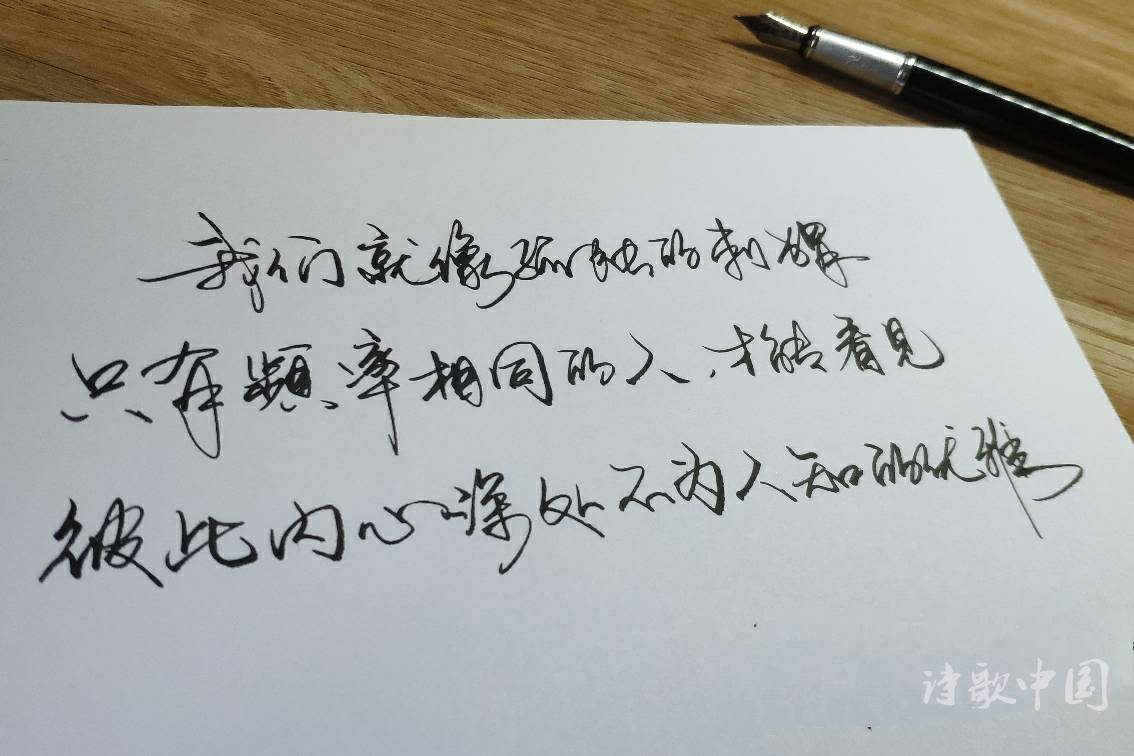 我们就像孤独的刺猬
只有频率相同的人,才能看见
彼此内心深处不为人知的优雅
诗歌中国